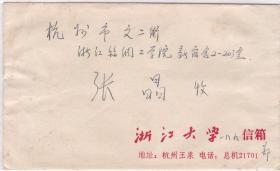 杭州市文二街
浙江丝绸工学院新宿舍2-203室
张昌收
浙江大学 信箱
地址：杭州玉泉 电话：总机21701
郑